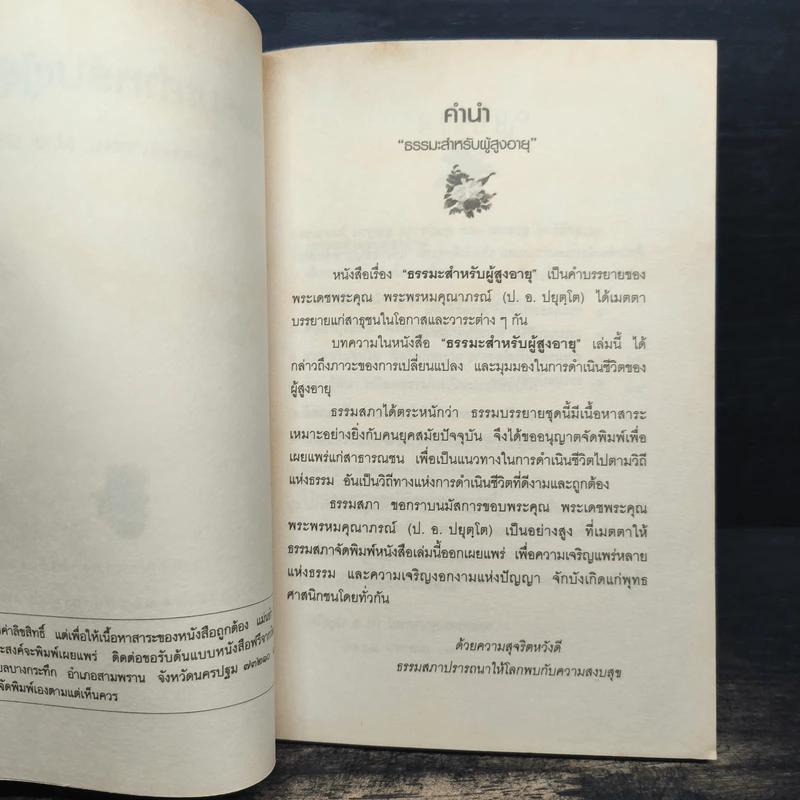 ค่าลิขสิทธิ์ แต่เพื่อให้เนื้อหาสาระของหนังสือถูกต้อง
ะสงค์จะพิมพ์เผยแพร่ ติดต่อขอรับต้นแบบหนังสือฟรีจาก
บลบางกระทึก อำเภอสามพราน จังหวัดนครปฐม ๗๓๒๑๐
จัดพิมพ์เองตามแต่เห็นควร
คำนำ
"ธรรมะสำหรับผู้สูงอายุ"
หนังสือเรื่อง "ธรรมะสำหรับผู้สูงอายุ" เป็นคำบรรยายของ
พระเดชพระคุณ พระพรหมคุณาภรณ์ (ป. อ. ปยุตฺโต) ได้เมตตา
บรรยายแก่สาธุชนในโอกาสและวาระต่าง ๆ กัน
บทความในหนังสือ "ธรรมะสำหรับผู้สูงอายุ" เล่มนี้ ได้
กล่าวถึงภาวะของการเปลี่ยนแปลง และมุมมองในการดำเนินชีวิตของ
ผู้สูงอายุ
ธรรมสภาได้ตระหนักว่า ธรรมบรรยายชุดนี้มีเนื้อหาสาระ
เหมาะอย่างยิ่งกับคนยุคสมัยปัจจุบัน จึงได้ขออนุญาตจัดพิมพ์เพื่อ
เผยแพร่แก่สาธารณชน เพื่อเป็นแนวทางในการดำเนินชีวิตไปตามวิถี
แห่งธรรม อันเป็นวิถีทางแห่งการดำเนินชีวิตที่ดีงามและถูกต้อง
ธรรมสภา ขอกราบนมัสการขอบพระคุณ พระเดชพระคุณ
พระพรหมคุณาภรณ์ (ป. อ. ปยุตฺโต) เป็นอย่างสูง ที่เมตตาให้
ธรรมสภาจัดพิมพ์หนังสือเล่มนี้ออกเผยแพร่ เพื่อความเจริญแพร่หลาย
แห่งธรรม และความเจริญงอกงามแห่งปัญญา จักบังเกิดแก่พุทธ
ศาสนิกชนโดยทั่วกัน
ด้วยความสุจริตหวังดี
ธรรมสภาปรารถนาให้โลกพบกับความสงบสุข